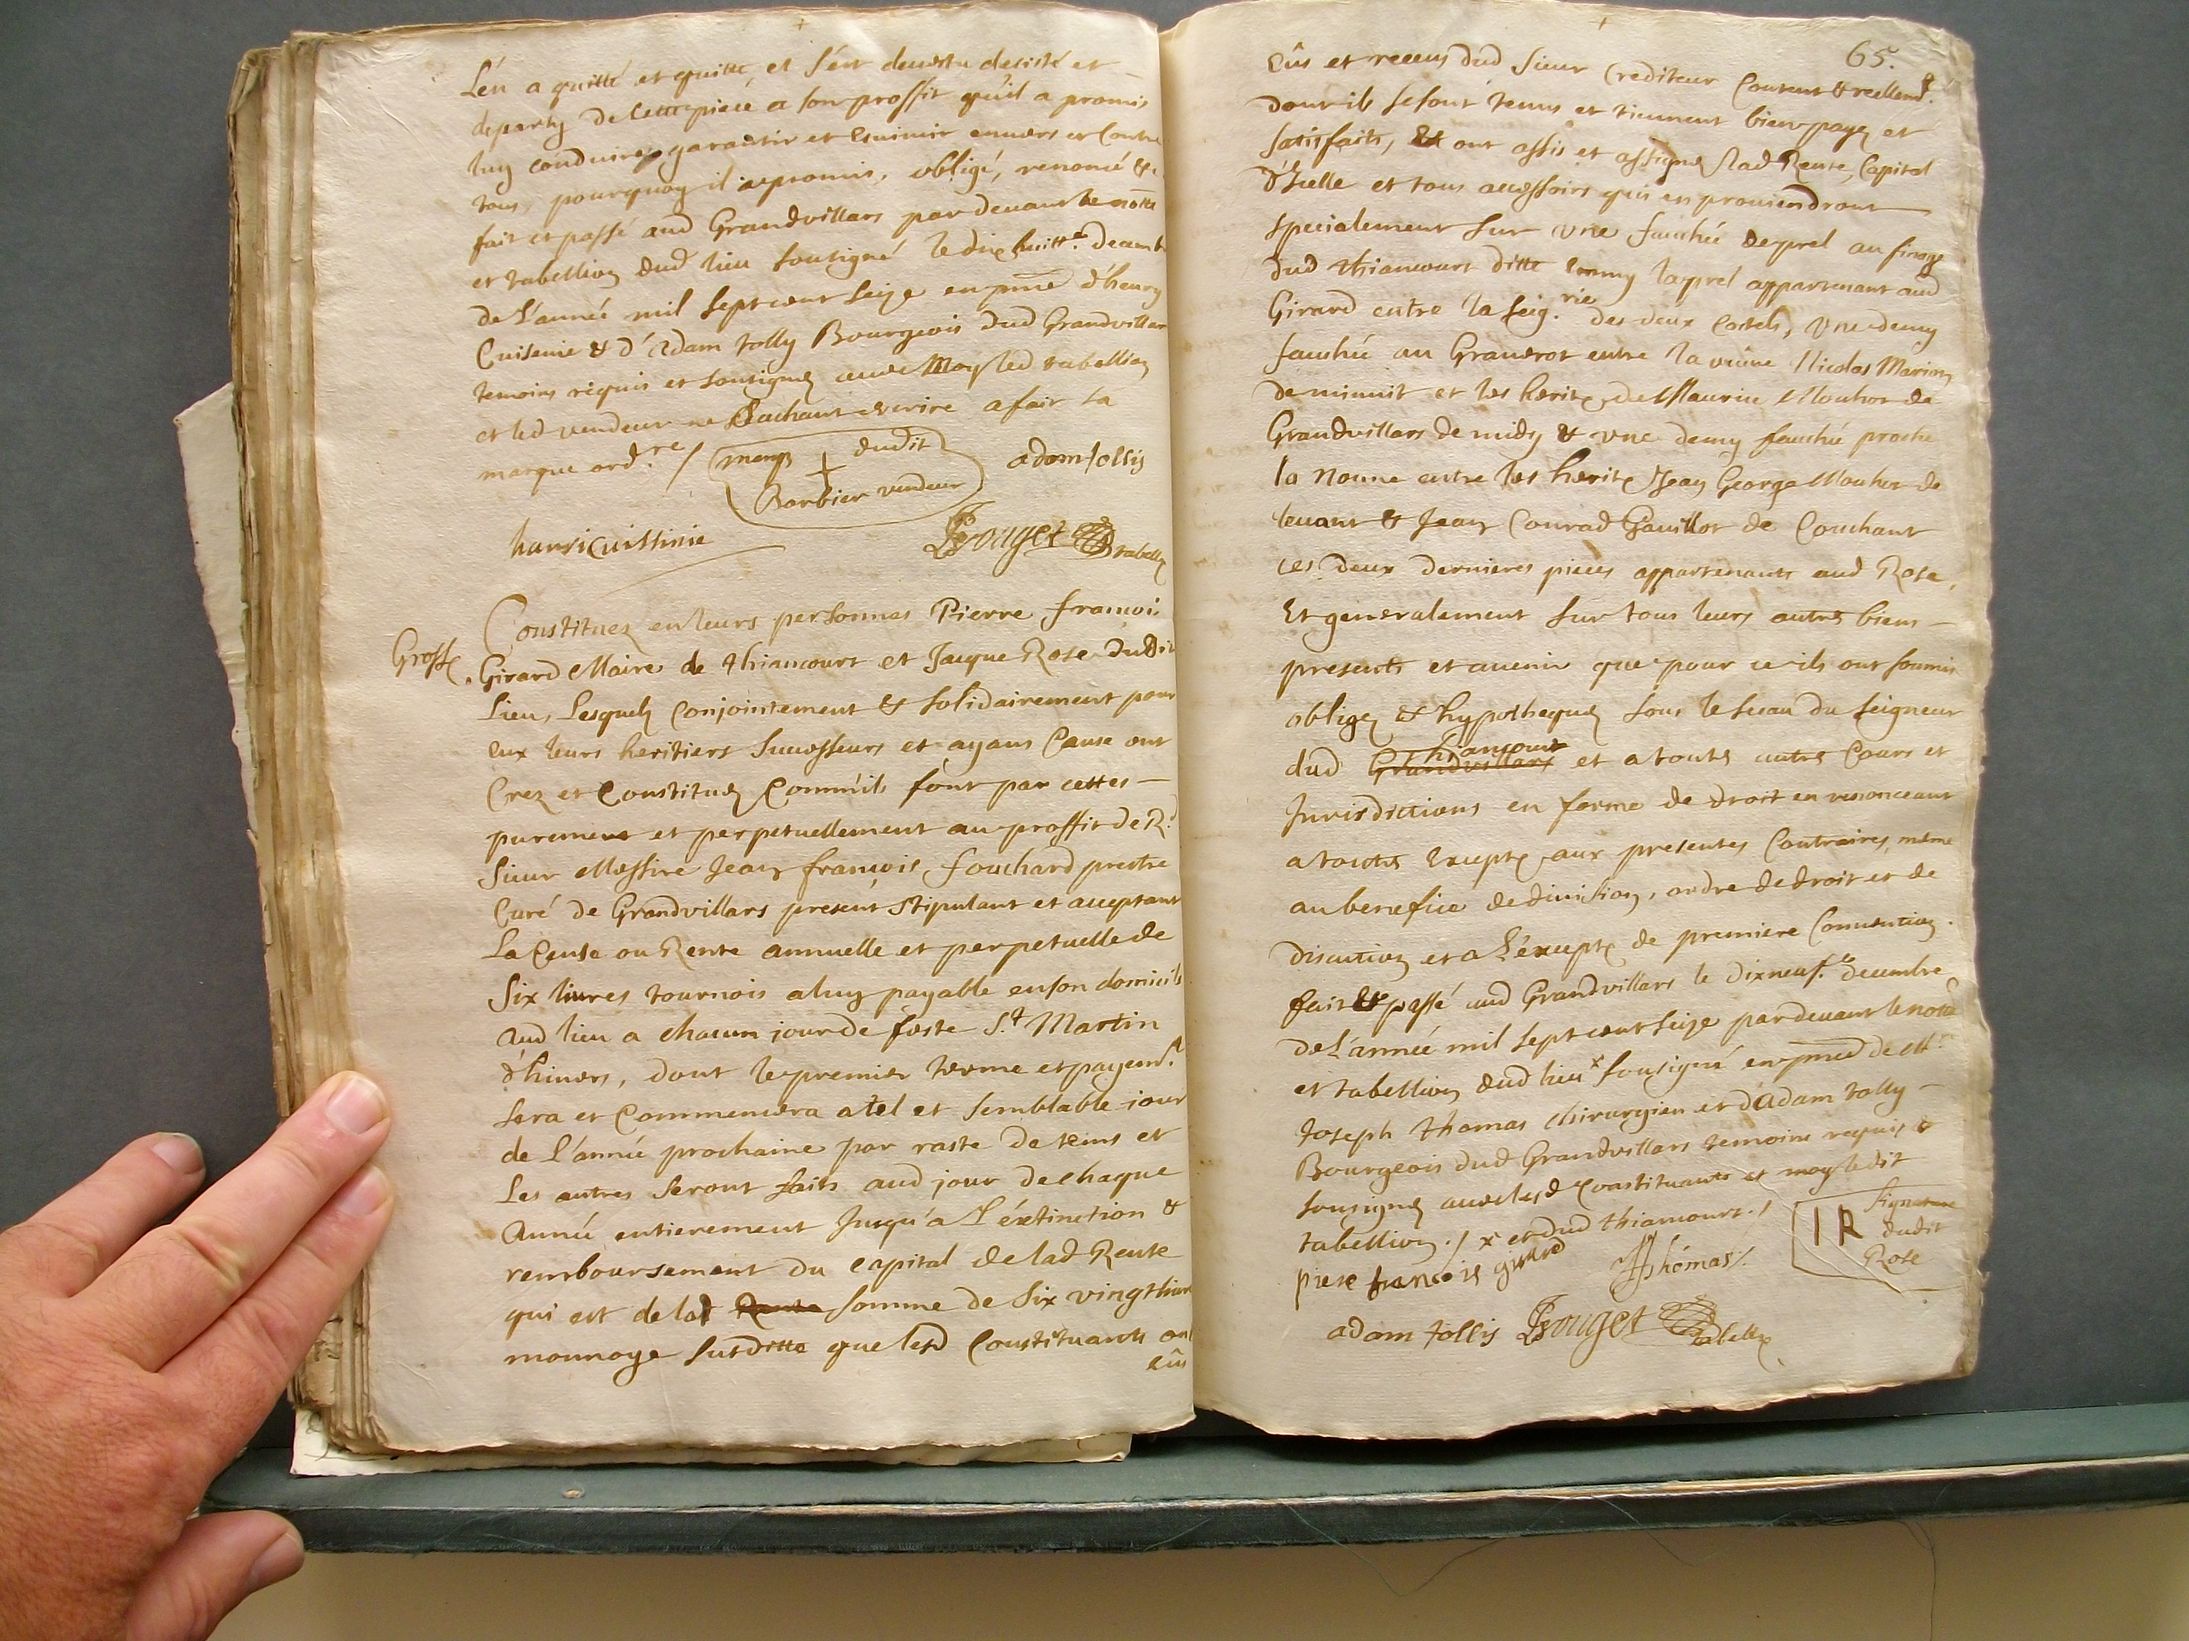 L'en a quitté et quitte, et s'est devestu desisté et
departy de cette piece a son proffit qu'il a promis
luy conduire, garantir et envers et contre
tous, pourquoy il a promis, obligé, renoncé &c
fait et passé aud Grandvillars par devant le notre
et tabellion dud lieu sousigné le dix huitt.e decemb
de L'année mil sept cent seize en pnce d'henry
Cuisenie & d'Adam tolly Bourgeois dud Grandvillars
temoins requis et soussignez avec Moy led tabellion
et led vendeur ne sachant escrire a fait sa
marque ord.re /
marq dudit
Barbier vendeur
adam tollis
hansicuissinie
Prouget tabellion
Grosse.
Constituez en leurs personnes Pierre francois
Girard Maire de thiancourt et Jacque Rose dudit
Lieu, Lesquels Conjointement & solidairement pour
eux leurs heritiers successeurs et ayans Cause ont
Creez et Constituez Comm'ils font par cettes –
purement et perpetuellement au proffit de R.d
Sieur Messire Jean françois fouchard prestre
Curé de Grandvillars present stipulant et acceptant
La Cense ou Rente annuelle et perpetuelle de
Six livres tournois a luy payable en son domicile
Aud lieu a chacun jour de feste S.t Martin
d'hivers, dont le premier terme et payem.t
sera et Commencera a tel et semblable jour
de L'année prochaine par raste de tems et
Les autres seront faits aud jour de chaque
Année entierement Jusqu'a L'éxtinction &
remboursement du Capital de lad Rente
qui est de lad Rente somme de Six vingt livre
monnoye susditte que lesd Constituants ont
eûs
65.
Eûs et receus dud sieur Crediteur Contant & reellem.t
dont ils se sont tenus et tiennent bien payez et
satisfaits, Et ont assis et assigné lad Rente, Capital
d'Icelle et tous accessoirs qui en proviendront
specialement sur une fauchée de prel au finage
dud thiancourt ditte la prel appartenant aud
Girard entre la Seig.rie des deux Costels, Une demy
fauchée au Grandrot entre la veuve Nicolas Marion
de minuit et les herite de Maurice Mouhot de
Grandvillars de midy & une demy fauchée proche
la Noune entre les herite Jean George Mouhot de
levant & Jean Conrad Gauillot de Couchant
ces deux dernieres pieces appartenants aud Rose,
Et generalement sur tous leurs autres biens –
presents et avenir que pour ce ils ont soumis
obligez & hypothequez sous le sceau du seigneur
thiancourt
dud Grandvillars et a touts autres Cours et
Jurisdictions en forme de droit en renonceant
a toutes Excepte aux presentes Contraires, même
au benefice de division, ordre de droit et de
discution et a L'éxcepte de premiere Convention.
fait & passé aud Grandvillars le dixneuf.e decembre
de L'année mil sept cent seize pardevant le notre
et tabellion dud lieu x soussigné en pnce de M.e
Joseph thomas chirurgien et d'Adam tolly –
Bourgeois dud Grandvillars temoins requis &
soussignez avec lesd Constituants et moy ledit
tabellion ./ x et dud thiancourt ./
Signature
IR dudit
Rose
piere francois girard
JJthómas/.
adam tollis Prouget tabellion